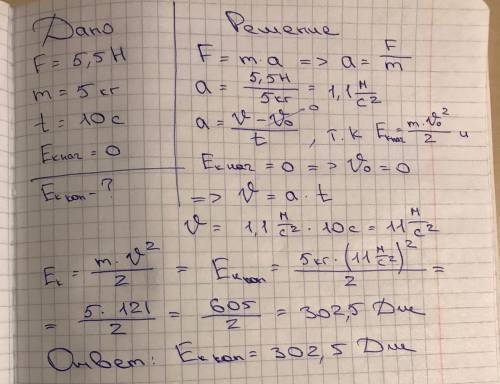 Дано
F = 5,5 Н
m = 5 кг
t = 10 с
Eк наг = 0
Eк кон - ?
Решение
F = m · a => a = F/m
a = 5,5 Н / 5 кг = 1,1 Н/с²
a = (v - v₀)/t, т.к Eк наг = m · v₀²/2 и
0
Eк наг = 0 => v₀ = 0
=> v = a · t
v = 1,1 Н/с² · 10 с = 11 Н/с²
Eк = m · v²/2 = Eк кон = 5 кг · (11 Н/с²)²/2 =
= 5 · 121/2 = 605/2 = 302,5 Дж
Ответ: Eк кон = 302,5 Дж